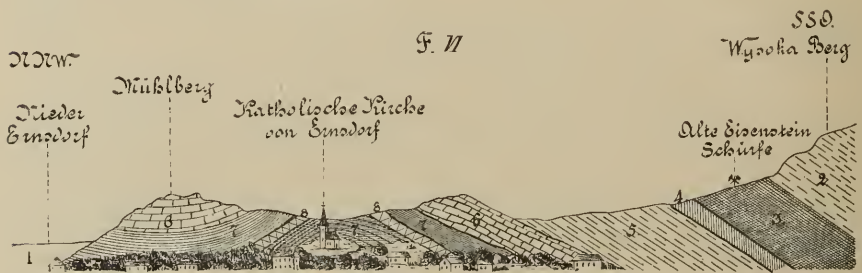 F. VI
NNW.
SSO.
Wysoka Berg
Mühlberg
Nieder
Ernsdorf
Katholische Kirche
von Ernsdorf
Alte Eisenstein
Schürfe
1
6
7
8
7
8
7
6
5
4
3
2